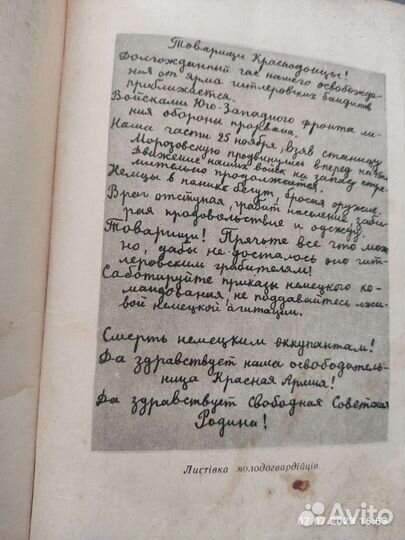 Товарищи Краснодонцы!
Долгожданный час нашего освобожде-
ния от ярма гитлеровских бандитов
приближается.
Войсками Юго-Западного фронта ли-
ния обороны прорвана.
Наша части 25 ноября, взяв станицу
Морозовскую продвинулись вперед на
Движение наших войск на запад стре-
мительно продолжается.
Немцы в панике бегут, бросая оружие.
Враг отступая, грабит население заби-
рая продовольствие и одежду.
Товарищи! Прячьте все что мож-
но, дабы не досталось оно гит-
леровским грабителям!
Саботируйте приказы немецкого ко-
мандования, не поддавайтесь лжи-
вой немецкой агитации.
Смерть немецким оккупантам!
Да здравствует наша освободитель-
ница Красная Армия!
Да здравствует свободная Советская
Родина!
Листівка молодогвардійців.
Avito